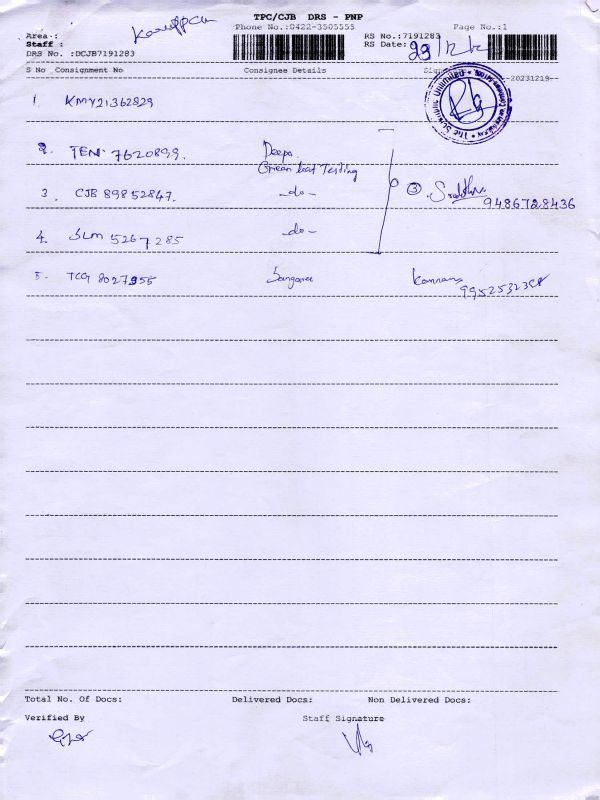 TPC/CJB DRS - PNP
Phone No.:0422-3505555 Page No.:1
Area :
Staff :
RS No.:7191283
RS Date:
DRS No. :DCJB7191283
S No Consignment No Consignee Details
20231219
1. KMY21362829
2. TEN 7620899. Deepa
Green leaf Testing
3. CJB 89852847. -do- ③
9486728436
4. SLM 5267285 -do-
5. TCG 8027955
Total No. Of Docs: Delivered Docs: Non Delivered Docs:
Verified By Staff Signature